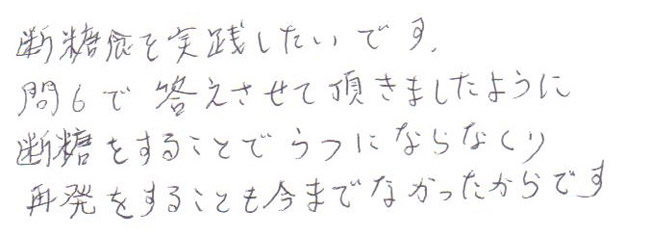 断糖食を実践したいです.
問6で答えさせて頂きましたように
断糖をすることでうつにならなくり
再発をすることも今までなかったからです